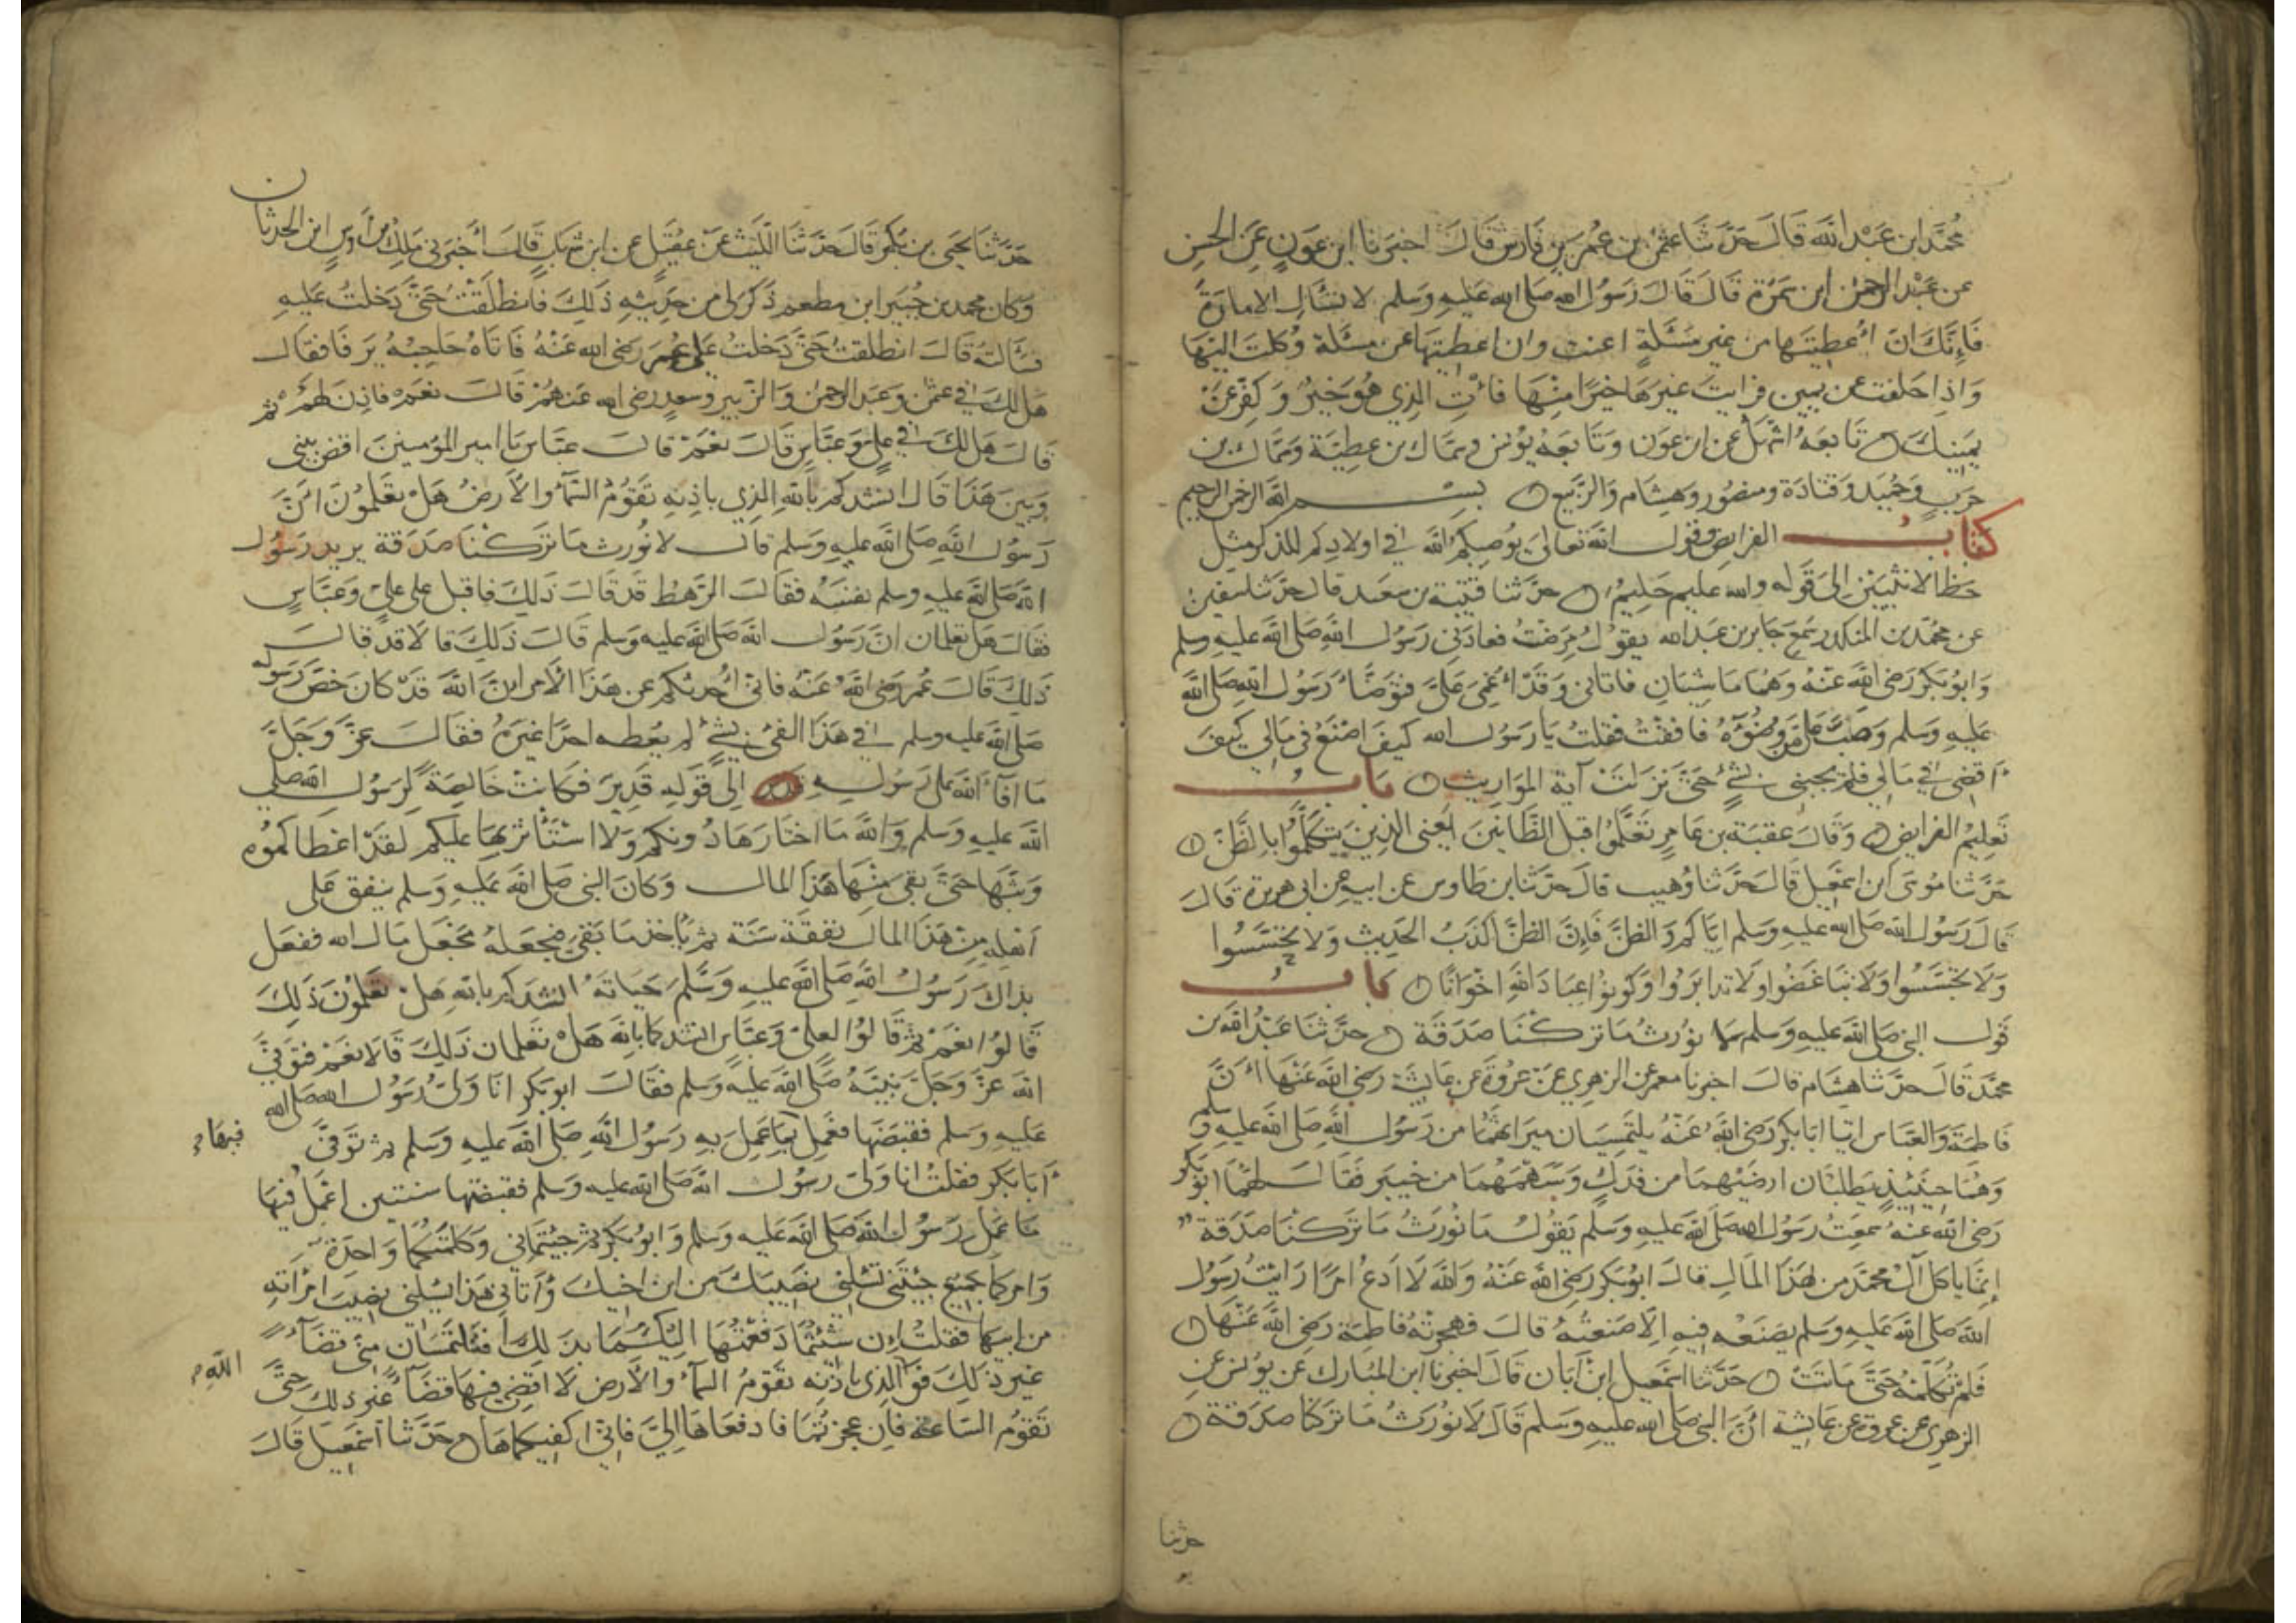 محمد ابن عبد الله قال حدثنا عثمن بن عمر بن فارس قال اخبرنا ابن عون عن الحسن
عن عبد الرحمن ابن سمرة قال قال رسول الله صلى الله عليه وسلم لا تسأل الامارة
فإنك ان أعطيتها من غير مسئلة اعنت وان اعطيتها عن مسئلة وكلت اليها
واذا حلفت عن يمين فرايت غيرها خيرا منها فأت الذي هو خير وكفر عن
يمينك تابعه اشهل عن ابن عون وتابعه يونس وسماك بن عطية وسماك بن
حرب وحميد وقتادة ومنصور وهشام والربيع بسم الله الرحمن الرحيم
كتاب الفرايض وقول الله تعالى يوصيكم الله في اولادكم للذكر مثل
حظ الانثيين إلى قوله والله عليم حليم حدثنا قتيبة بن سعد قال حدثنا سفين
عن محمد بن المنكدر سمع جابر بن عبد الله يقول مرضت فعادني رسول الله صلى الله عليه وسلم
وابو بكر رضي الله عنه وهما ماشيان فاتاني وقد أغمي علي فتوضأ رسول الله صلى الله
عليه وسلم وصب علي من وضوءه فافقت فقلت يا رسول الله كيف اصنع في مالي كيف
أقضي في مالي فلم يجبني بشئ حتى نزلت آية المواريث باب
تعليم الفرايض وقال عقبة بن عامر تعلموا قبل الظانين يعني الذين يتكلموا بالظن
حدثنا موسى ابن اسمعيل قال حدثنا وهيب قال حدثنا ابن طاوس عن ابيه عن ابي هريرة قال
قال رسول الله صلى الله عليه وسلم اياكم والظن فإن الظن أكذب الحديث ولا تحسسوا
ولا تجسسوا ولا تباغضوا ولا تدابروا وكونوا عباد الله اخوانا باب
قول النبي صلى الله عليه وسلم لا نورث ما تركنا صدقة حدثنا عبد الله بن
محمد قال حدثنا هشام قال اخبرنا معمر عن الزهري عن عروة عن عايشة رضي الله عنها أن
فاطمة والعباس اتيا ابا بكر رضي الله عنه يلتمسان ميراثهما من رسول الله صلى الله عليه وسلم
وهما حينئذ يطلبان ارضيهما من فدك وسهمهما من خيبر فقال لهما ابو بكر
رضي الله عنه سمعت رسول الله صلى الله عليه وسلم يقول ما نورث ما تركنا صدقة
إنما ياكل آل محمد من هذا المال قال ابو بكر رضي الله عنه والله لا ادع امرا رايت رسول
الله صلى الله عليه وسلم يصنعه فيه الا صنعته قال فهجرته فاطمة رضي الله عنها
فلم تكلمه حتى ماتت حدثنا اسمعيل ابن أبان قال اخبرنا ابن المبارك عن يونس عن
الزهري عن عروة عن عايشة أن النبي صلى الله عليه وسلم قال لا نورث ما تركنا صدقة
حدثنا
حدثنا يحيى بن بكير قال حدثنا الليث عن عقيل عن ابن شهاب قال أخبرني ملك بن أوس ابن الحدثان
وكان محمد بن جبير ابن مطعم ذكر لي من حديثه ذلك فانطلقت حتى دخلت عليه
فسألته قال انطلقت حتى دخلت على عمر رضي الله عنه فاتاه حاجبه يرفا فقال
هل لك في عثمن وعبد الرحمن والزبير وسعد رضي الله عنهم قال نعم فاذن لهم ثم
قال هل لك في علي وعباس قال نعم قال عباس يا امير المؤمنين اقض بيني
وبين هذا قال انشدكم بالله الذي باذنه تقوم السمآء والأرض هل تعلمون ان
رسول الله صلى الله عليه وسلم قال لا نورث ما تركنا صدقة يريد رسول
الله صلى الله عليه وسلم نفسه فقال الرهط قد قال ذلك فاقبل على علي وعباس
فقال هل تعلمان ان رسول الله صلى الله عليه وسلم قال ذلك قالا قد قال
ذلك قال عمر رضي الله عنه فاني أحدثكم عن هذا الأمر ان الله قد كان خص رسوله
صلى الله عليه وسلم في هذا الفئ بشئ لم يعطه احدا غيره فقال عز وجل
ما افآء الله على رسوله إلى قوله قدير فكانت خالصة لرسول الله صلى
الله عليه وسلم والله ما اختارها دونكم ولا استأثر بها عليكم لقد اعطاكموه
وبثها حتى بقي منها هذا المال وكان النبي صلى الله عليه وسلم ينفق على
أهله من هذا المال نفقة سنة ثم يأخذ ما بقي فيجعله مجعل مال الله ففعل
بذاك رسول الله صلى الله عليه وسلم حياته انشدكم بالله هل تعلمون ذلك
قالوا نعم ثم قالوا لعلي وعباس انشدكما بالله هل تعلمان ذلك قالا نعم فتوفى
الله عز وجل نبيه صلى الله عليه وسلم فقال ابو بكر انا ولي رسول الله صلى الله
عليه وسلم فقبضها فعمل بما عمل به رسول الله صلى الله عليه وسلم ثم توفى
فيها
أبا بكر فقلت انا ولي رسول الله صلى الله عليه وسلم فقبضتها سنتين اعمل فيها
ما عمل رسول الله صلى الله عليه وسلم وابو بكر ثم جيتماني وكلمتكما واحدة
وامركما جميع جيتني تسلني نصيبك من ابن اخيك وأتاني هذا يسلني نصيب امرأته
من ابيها فقلت إن شئتما دفعتها اليكما بذلك فتلتمسان مني قضآء
غير ذلك فوالذي باذنه تقوم السمآء والأرض لا اقضي فيها قضآء غير ذلك حتى
الله
تقوم الساعة فإن عجزتما فادفعاها إلي فاني اكفيكماها حدثنا اسمعيل قال